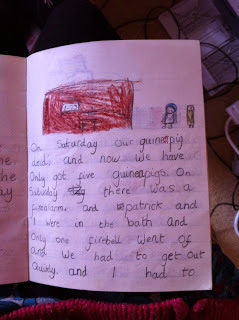 On Saturday Our guineapig
died. and now we have
Only got five guineapigs. On
Saturday there was a
firealarm. and patrick and
I were in the bath and
Only one firebell went of
and we had to get out
Quickly. and I had to